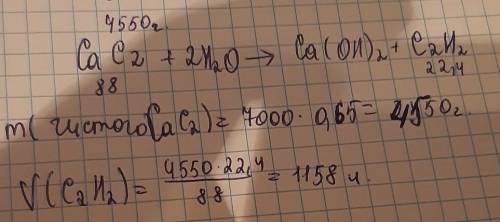 4550г.
CaC2 + 2H2O → Ca(OH)2 + C2H2
88 22,4
m(чистогоCaC2) = 7000 · 0,65 = 4550г.
V(C2H2) = 4550·22,4 / 88 = 1158 л.